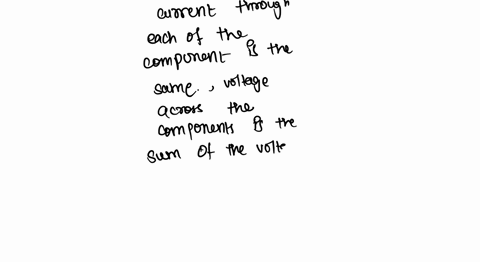 current through
each of the
component is the
same., voltage
across the
components is the
sum of the volte